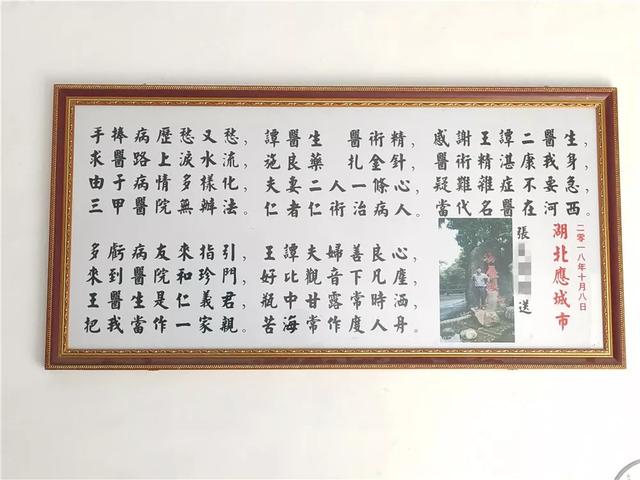 手捧病歷愁又愁，
求醫路上淚水流，
由于病情多樣化，
三甲醫院無辦法。
譚醫生 醫術精，
施良藥 扎金針，
夫妻二人一條心，
仁者仁術治病人。
感謝王譚二醫生，
醫術精湛康我身，
疑難雜症不要急，
當代名醫在河西。
多虧病友來指引，
來到醫院和珍門，
王醫生是仁義君，
把我當作一家親。
王譚夫婦善良心，
好比觀音下凡塵，
瓶中甘露常時洒，
苦海常作度人舟。
張 送
湖北應城市
二零一八年十月八日